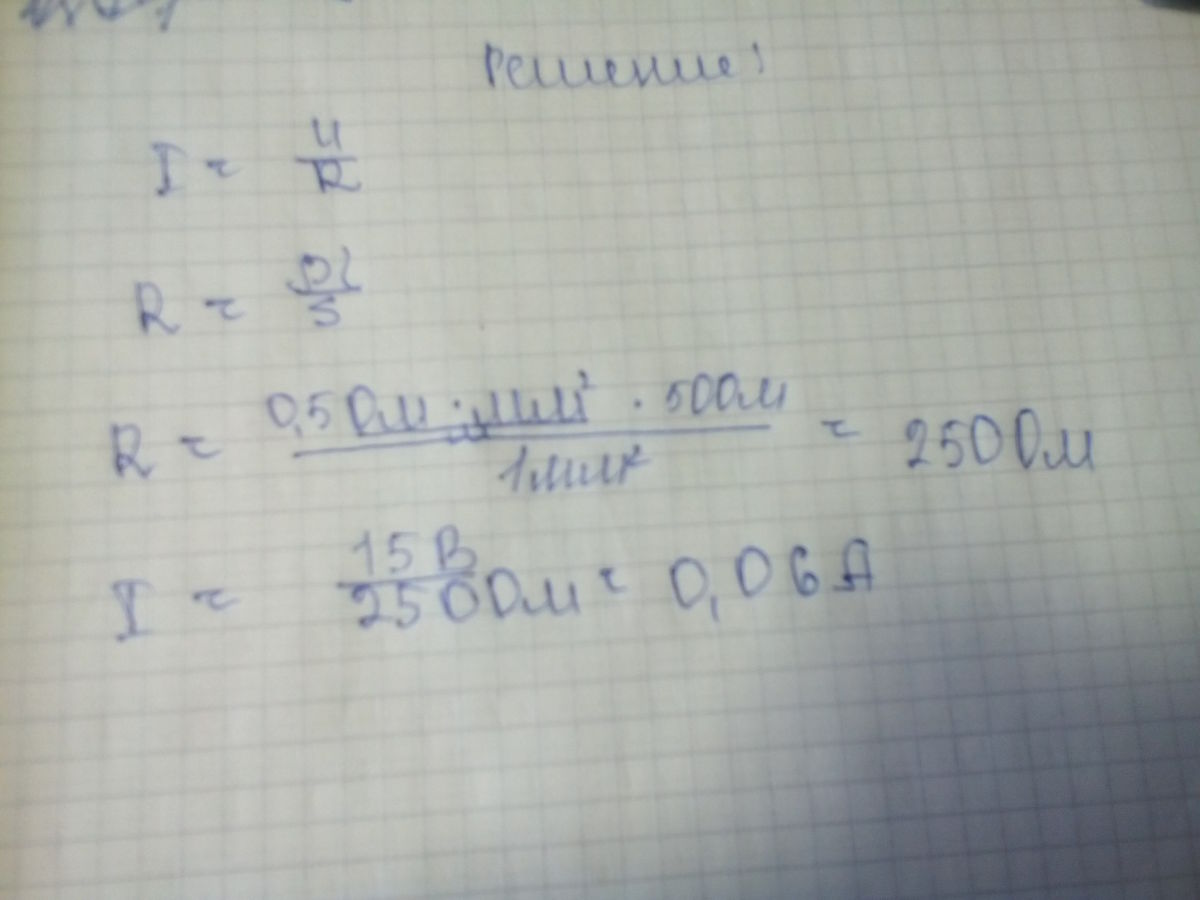 Решение:
I = U/R
R = ρl/S
R = 0,5 Ом · мм² · 500м / 1мм² = 250 Ом
I = 15 В / 250 Ом = 0,06 А